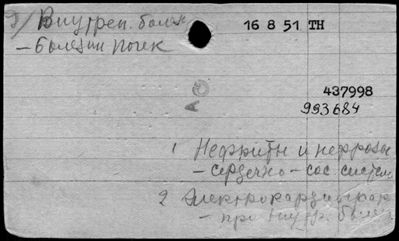 3/ Внутрен. болез
16 8 51 TH
– болезни почек
А
437998
993684
1 Нефриты и нефрозы
– сердечно – сос систем
2 Электрокардиограф
– при внутр. болез